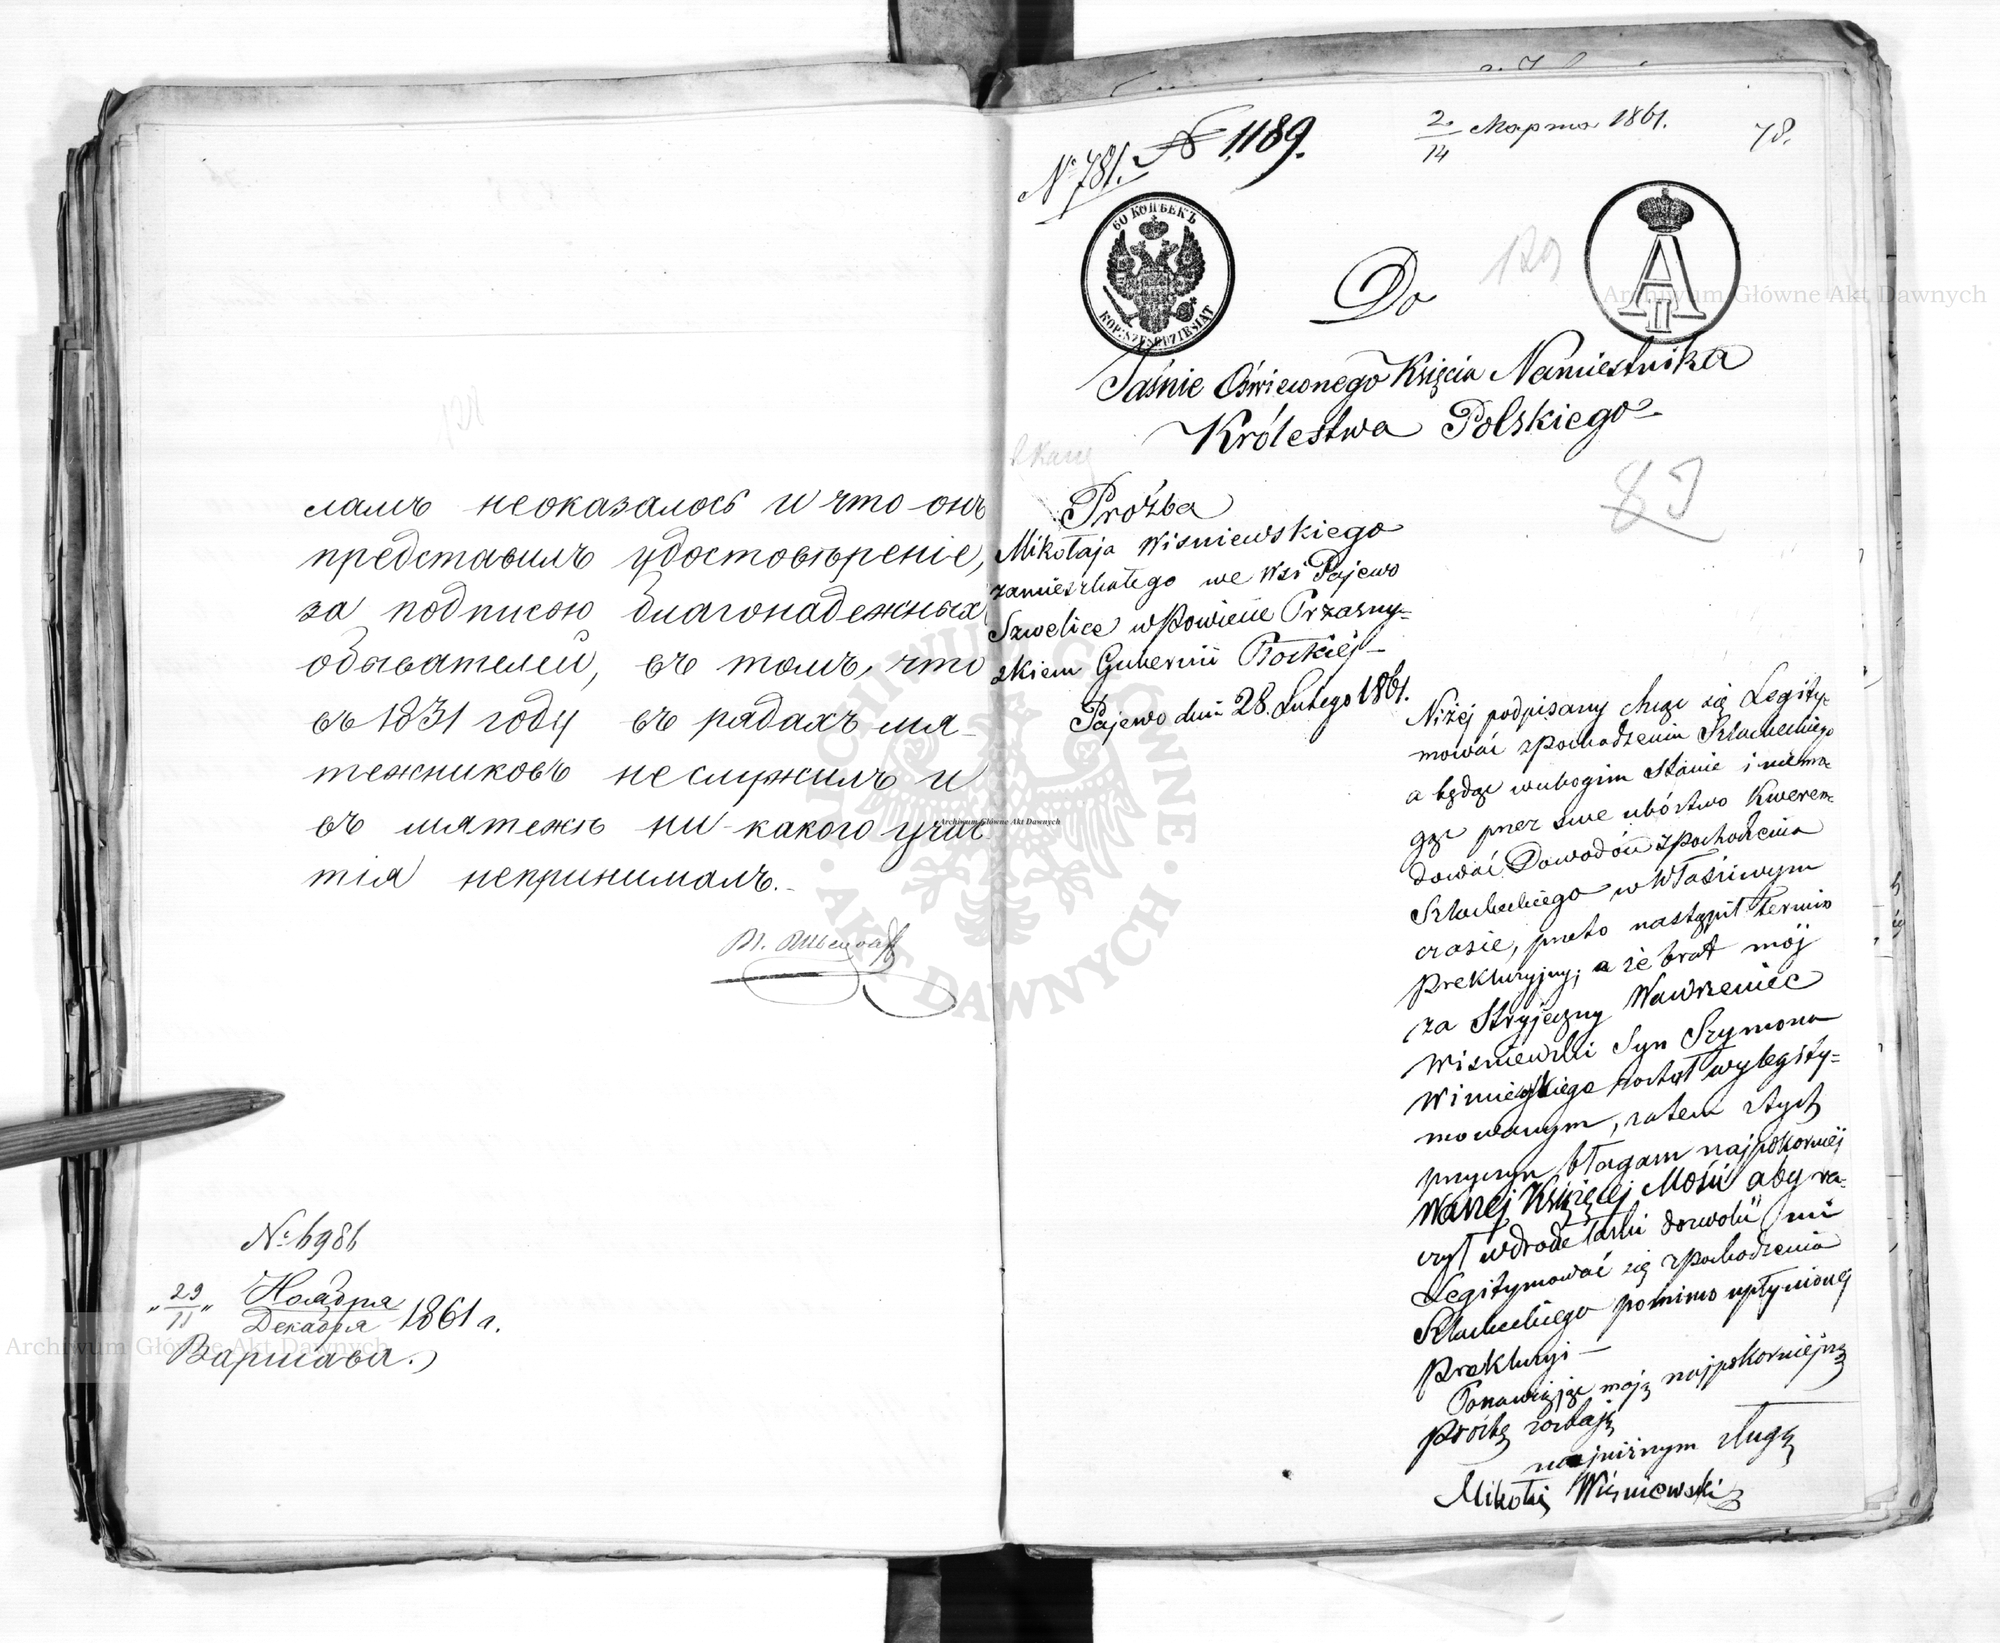 ламъ неоказалось и что онъ
представилъ удостовѣреніе,
за подписью благонадежныхъ
обывателей, въ томъ, что
въ 1831 году въ рядахъ мя-
тежниковъ неслужилъ и
въ мятежѣ ни-какого учас
тія непринималъ.
№ 6986
"29/11" Ноября/Декабря 1861 г.
Варшава.
2/14 Марта 1861.
78.
№ 781. № 1189.
60 КОПѢЕКЪ
KOP: SZEŚĆDZIESIĄT
A II
129
Do
Jaśnie Oświeconego Księcia Namiestnika
Królestwa Polskiego
83
Proźba
Mikołaja Wisniewskiego
zamieszkałego we wsi Pajewo
Szwelice w Powiecie Przasny-
skiem Gubernii Płockiej
Pajewo dnia 28. Lutego 1861.
Niżej podpisany chcąc się Legity-
mować z Pochodzenia Szlacheckiego
a będąc w ubogim stanie i niemo-
gąc przez swe ubóstwo Kweren-
dować Dowodów z Pochodzenia
Szlacheckiego w Właściwym
czasie, przeto nastąpił termin
Prekluzyjny; a że brat mój
za Stryjeczny Wawrzeniec
Wisniewski Syn Szymona
Wisniewskiego został wylegity-
mowanym, zatem z tych
przyczyn błagam najpokorniej
Waszej Książęcej Mości aby ra-
czył w drodze łaski dozwolić mi
Legitymować się z Pochodzenia
Szlacheckiego pomimo upłynionej
Prekluzyi —
Ponawiając moją najpokorniejszą
Prośbę zostaję
najniższym sługą
Mikołaj Wiśniewski
Archiwum Główne Akt Dawnych
Archiwum Główne Akt Dawnych
Archiwum Główne Akt Dawnych
ARCHIWUM GŁÓWNE AKT DAWNYCH